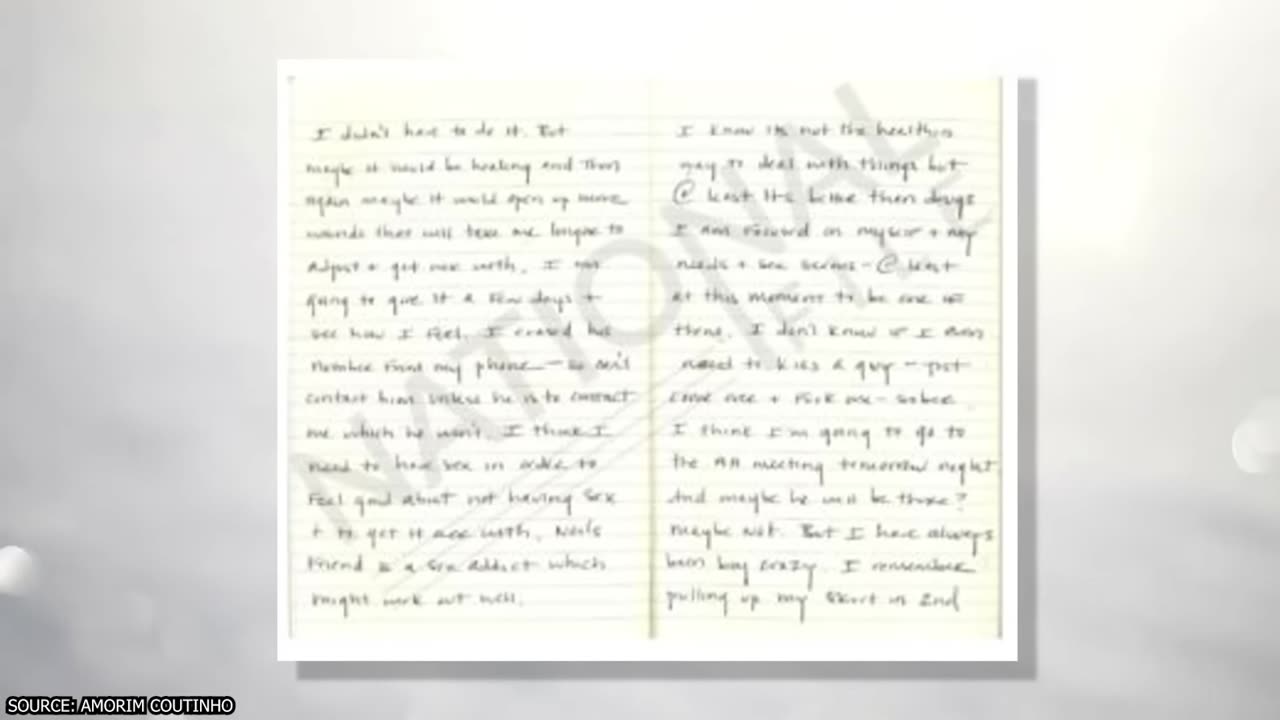 I didn't have to do it. But
maybe it would be healing and then
again maybe it would open up more
wounds that will take me longer to
adjust + get over with. I am
going to give it a few days +
see how I feel. I erased his
number from my phone - so can't
contact him unless he is to contact
me which he won't. I think I
need to have sex in order to
feel good about not having sex
+ to get it over with.
friend is a sex addict which
might work out well.
I know its not the healthies
way to deal with things but
@ least its better then drugs
I am focused on myself + my
needs + sex seems - @ least
at this moment to be one of
them. I don't know if I even
need to kiss a guy - just
come over + fuck me - sober.
I think I'm going to go to
the AA meeting tomorrow night
And maybe he will be there?
Maybe Not. But I have always
been boy crazy. I remember
pulling up my skirt in 2nd
NATIONAL
FILE
SOURCE: AMORIM COUTINHO